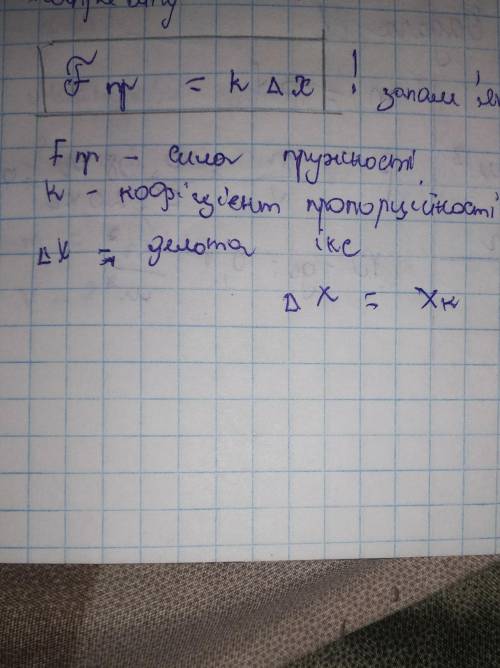 Fпр = к Δ х ! запам'я
Fпр - сила пружності
к - кофіцієнт пропорційності
Δх = дельта ікс
Δ х = хк